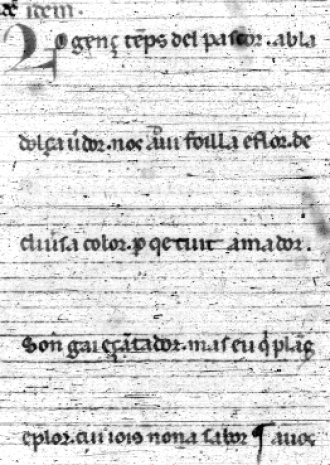 item.
Lo genç tẽps del pascor. abla
dolça ũdor. nos aui foilla e flor. de
diuisa color. p qe tuit amador.
Son gai eçãtador. mas eu q̃ plãg
eplor. cui iois nona sabor ¶ auos